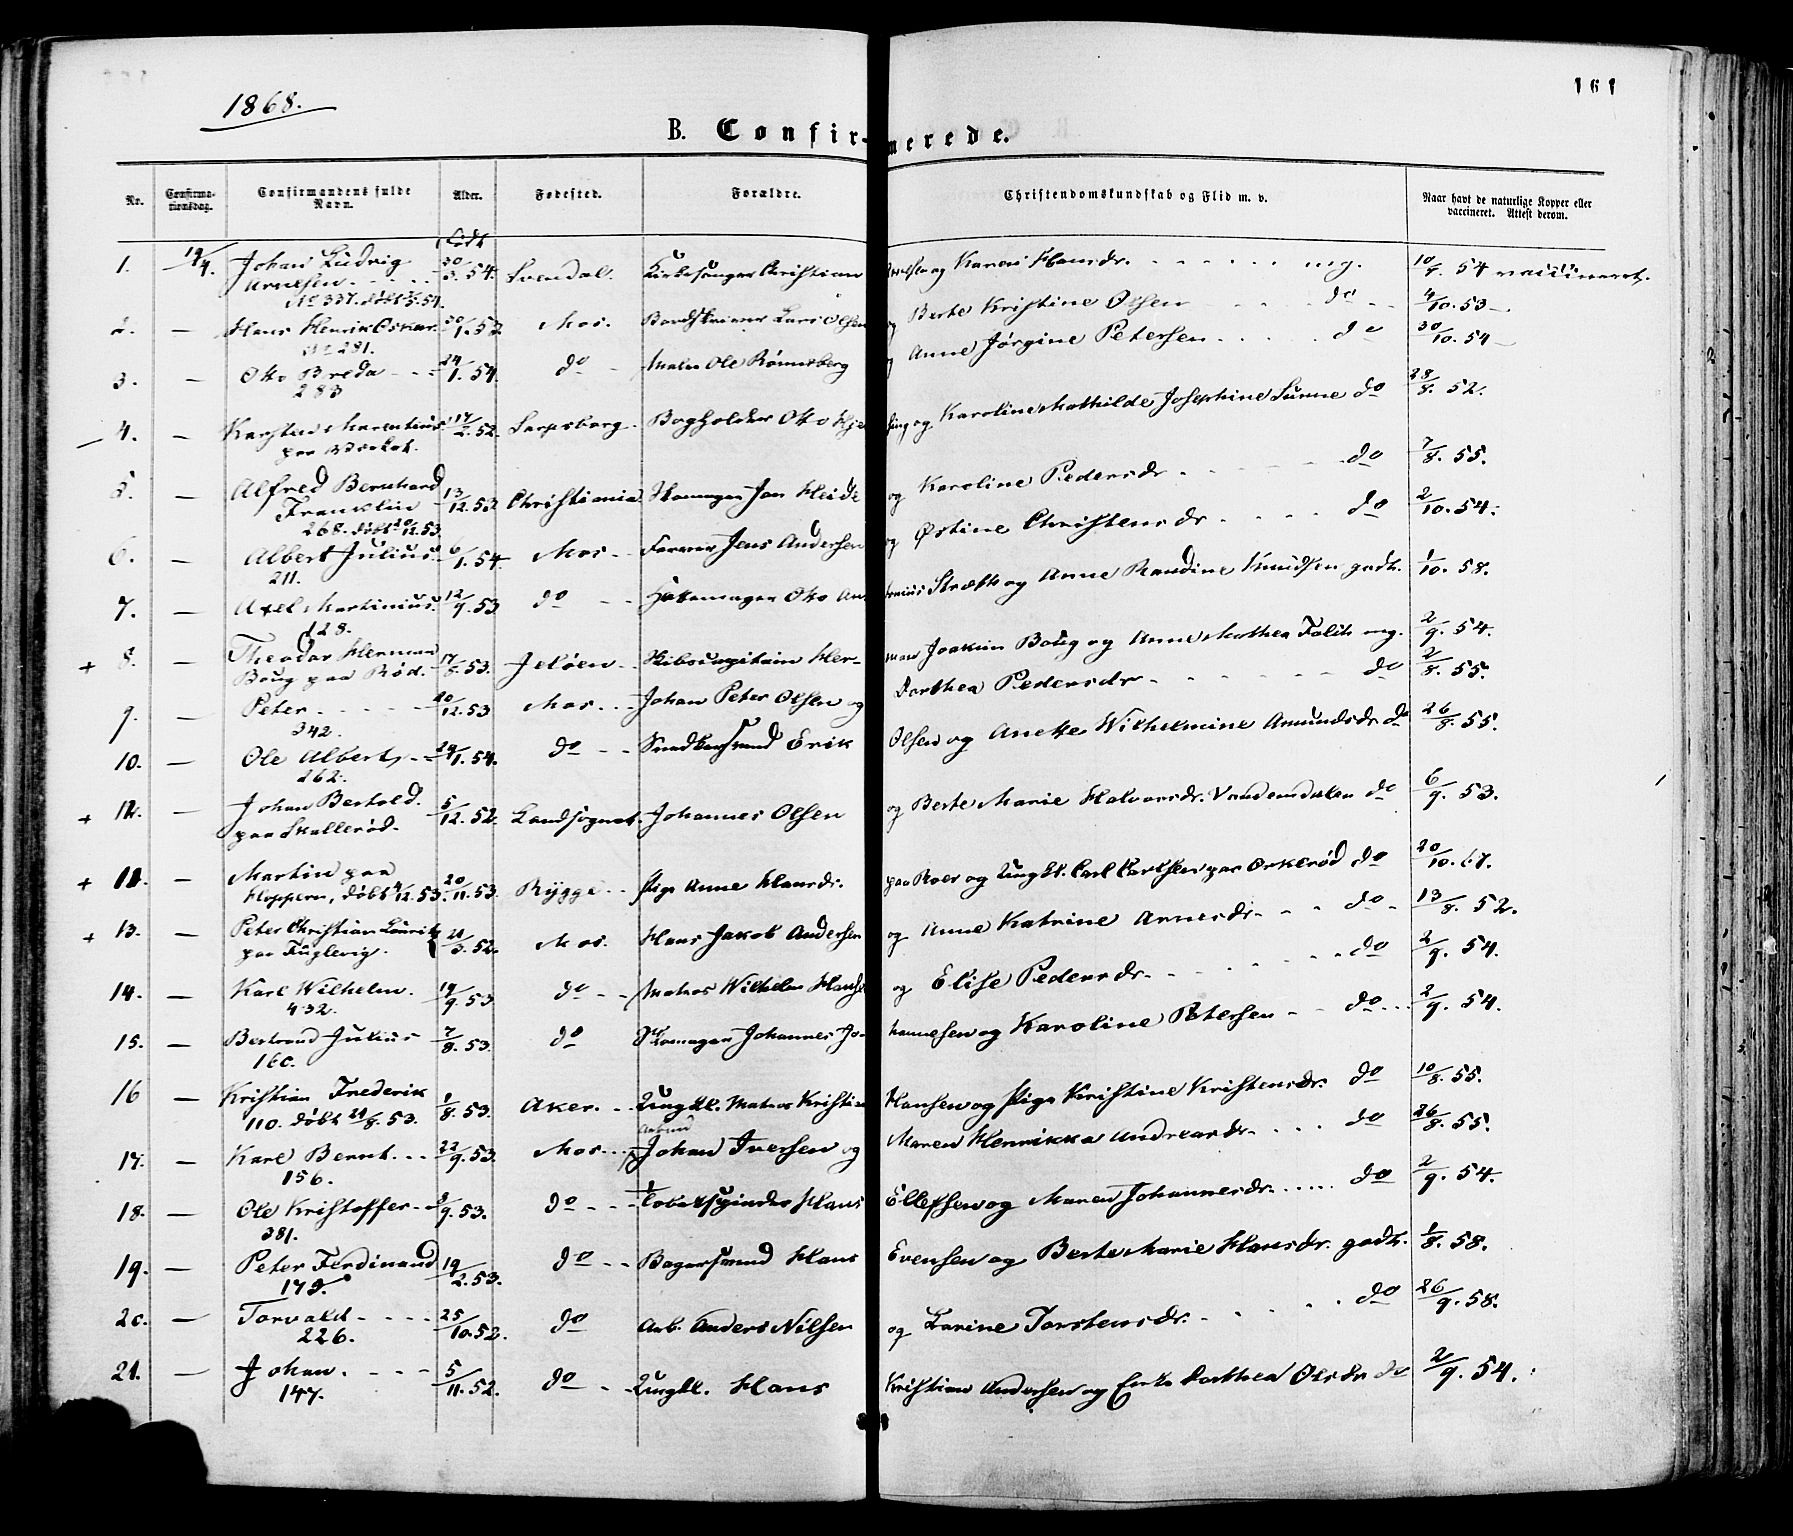 161
1868.
B. Confirmerede.
Nr. Confirmationsdag. Confirmandens fulde Navn. Alder. Fødested. Forældre. Christendomskundskab og Flid m. v. Naar havt de naturlige Kopper eller vaccineret. Attest derom.
Født
1. 19/4. Johan Ludvig 30/3. 54. Kirkesanger Christian Arnesen og Karen Hansdr. mg. 10/9. 54 vaccineret.
Arnesen
No 337. døbt
2. — Hans Henrik Oskar. 30/1. 52 Mos. Lars Olsen og Berte Kristine Olsen do 4/10. 53
No 281.
3. — Otto Breda 24/1. 54. do Maler Ole Rønneberg og Anne Jørgine Petersen do 30/10. 54
283
4. — Karsten Marentius 17/2. 52. Sarpsborg Bogholder Otto og Karoline Mathilde Josephine Lunne do 28/8. 52.
paa
5. — Alfred Bernhard 13/12. 53 Christiania Skomager Jan Heide og Karoline Pedersdr. do 7/8. 55.
Franklin
268. døbt 26/12. 53.
6. — Albert Julius. 6/1. 54 Mos Farver Jens Andersen og Østine Christensdr. do 2/10. 54.
211.
7. — Axel Martinius. 12/9. 53 do Otto Antonius Stræth og Anne Randine Knudsen godt. 1/10. 58.
128.
+ 8. — Theodor Herman 17/8. 53. Jeløen Skibscapitain Herman Joakim Boug og Anne Mathea Falch mg. 2/9. 54.
Boug paa Rød.
9. — Peter 20/12. 53 Mos Johan Peter Olsen og Dorthea Pedersdr. do 2/8. 55.
342.
10. — Ole Albert 29/1. 54. do Snedkersvend Erik Olsen og Anette Wilhelmine Amundsdr. do 26/8. 55.
262.
+ — Johan Bertold. 5/12. 52. Landsognet. Johannes Olsen og Berte Marie Halvorsdr. Vandemdalen do 6/9. 53.
paa Skallerød.
+ — Martin paa 20/11. 53. Rygge Pige Anne Hansdr. paa Roer og Ungkl. Carl Carlsen paa Orkerød do 20/10. 67.
Kloppern, døbt 4/12. 53.
+ 13. — Peter Christian Lauritz 21/3. 52. Mos. Hans Jakob Andersen og Anne Katrine Arnesdr. do 13/8. 52.
paa Fuglevig.
14. — Karl Wilhelm. 19/9. 53 do Matros Wilhelm Hansen og Elise Pedersdr. do 2/9. 54.
432.
15. — Bertrand Julius 7/8. 53. do Skomager Johannes Johannesen og Karoline Petersen do 2/9. 54.
160.
16 — Kristian Frederik 1/8. 53. Aker. Ungkl. Matros Kristian Hansen og Pige Kristine Kristensdr. do 10/8. 55.
110. døbt 21/8. 53.
17. — Karl Bernt 22/9. 53. Mos Johan Iversen og Maren Henrikka Andreasdr. do 26/8. 55.
156.
18. — Ole Kristoffer 2/9. 53. do Tobakspinder Hans Ellefsen og Maren Johannesdr. do 2/9. 54.
381.
19. — Peter Ferdinand 19/2. 53. do Bagersvend Hans Evensen og Berte Marie Hansdr. godt. 1/8. 58.
179.
20. — Torvald 25/10. 52. do Arb. Anders Nilsen og Larine Torstensdr. do 26/9. 58.
226.
21. — Johan. 5/11. 52. do Ungkl. Hans Kristian Andersen og Dorthea Olsdr. do 2/9. 54.
147.